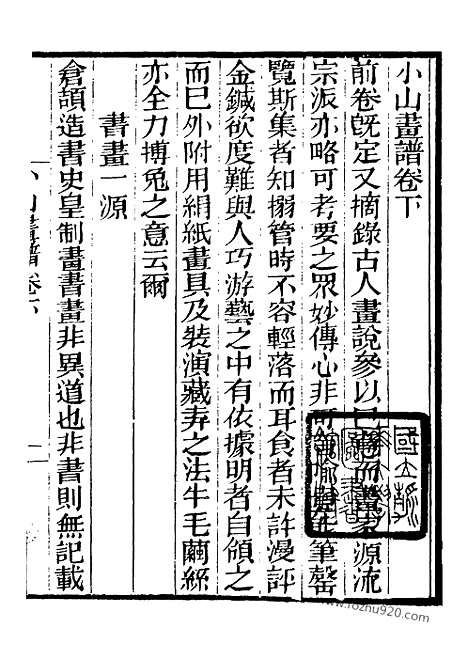 小山畫譜卷下
前卷旣定又摘錄古人畫說參以己意而畫家源流
宗派亦略可考要之眾妙傳心非可言喻難在筆罄
覽斯集者知搦管時不容輕落而耳食者未許漫評
金鍼欲度難與人巧游藝之中有依據明者自領之
而已外附用絹紙畫具及裝演藏弆之法牛毛繭絲
亦全力搏兔之意云爾
書畫一源
倉頡造書史皇制畫書畫非異道也非書則無記載
小山畫譜卷下
一
www.rozhu920.com